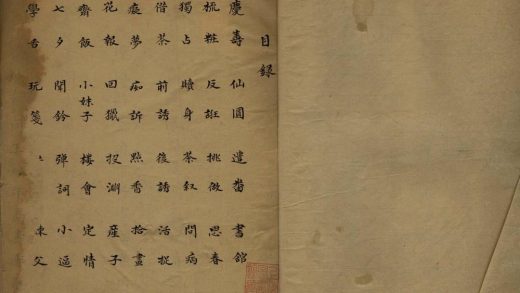 目錄
慶壽 仙圓 遣 書館
梳粧 反誑 挑做 思春
獨占 贖身 茶叙 問病
借茶 前誘 後誘 活捉
癡夢 痴訴 點香 拾畫
花報 回獵 投淵 產子
齋飯 小妹子 樓會 定情
七夕 聞鈴 彈詞 小逼
學舌 玩箋